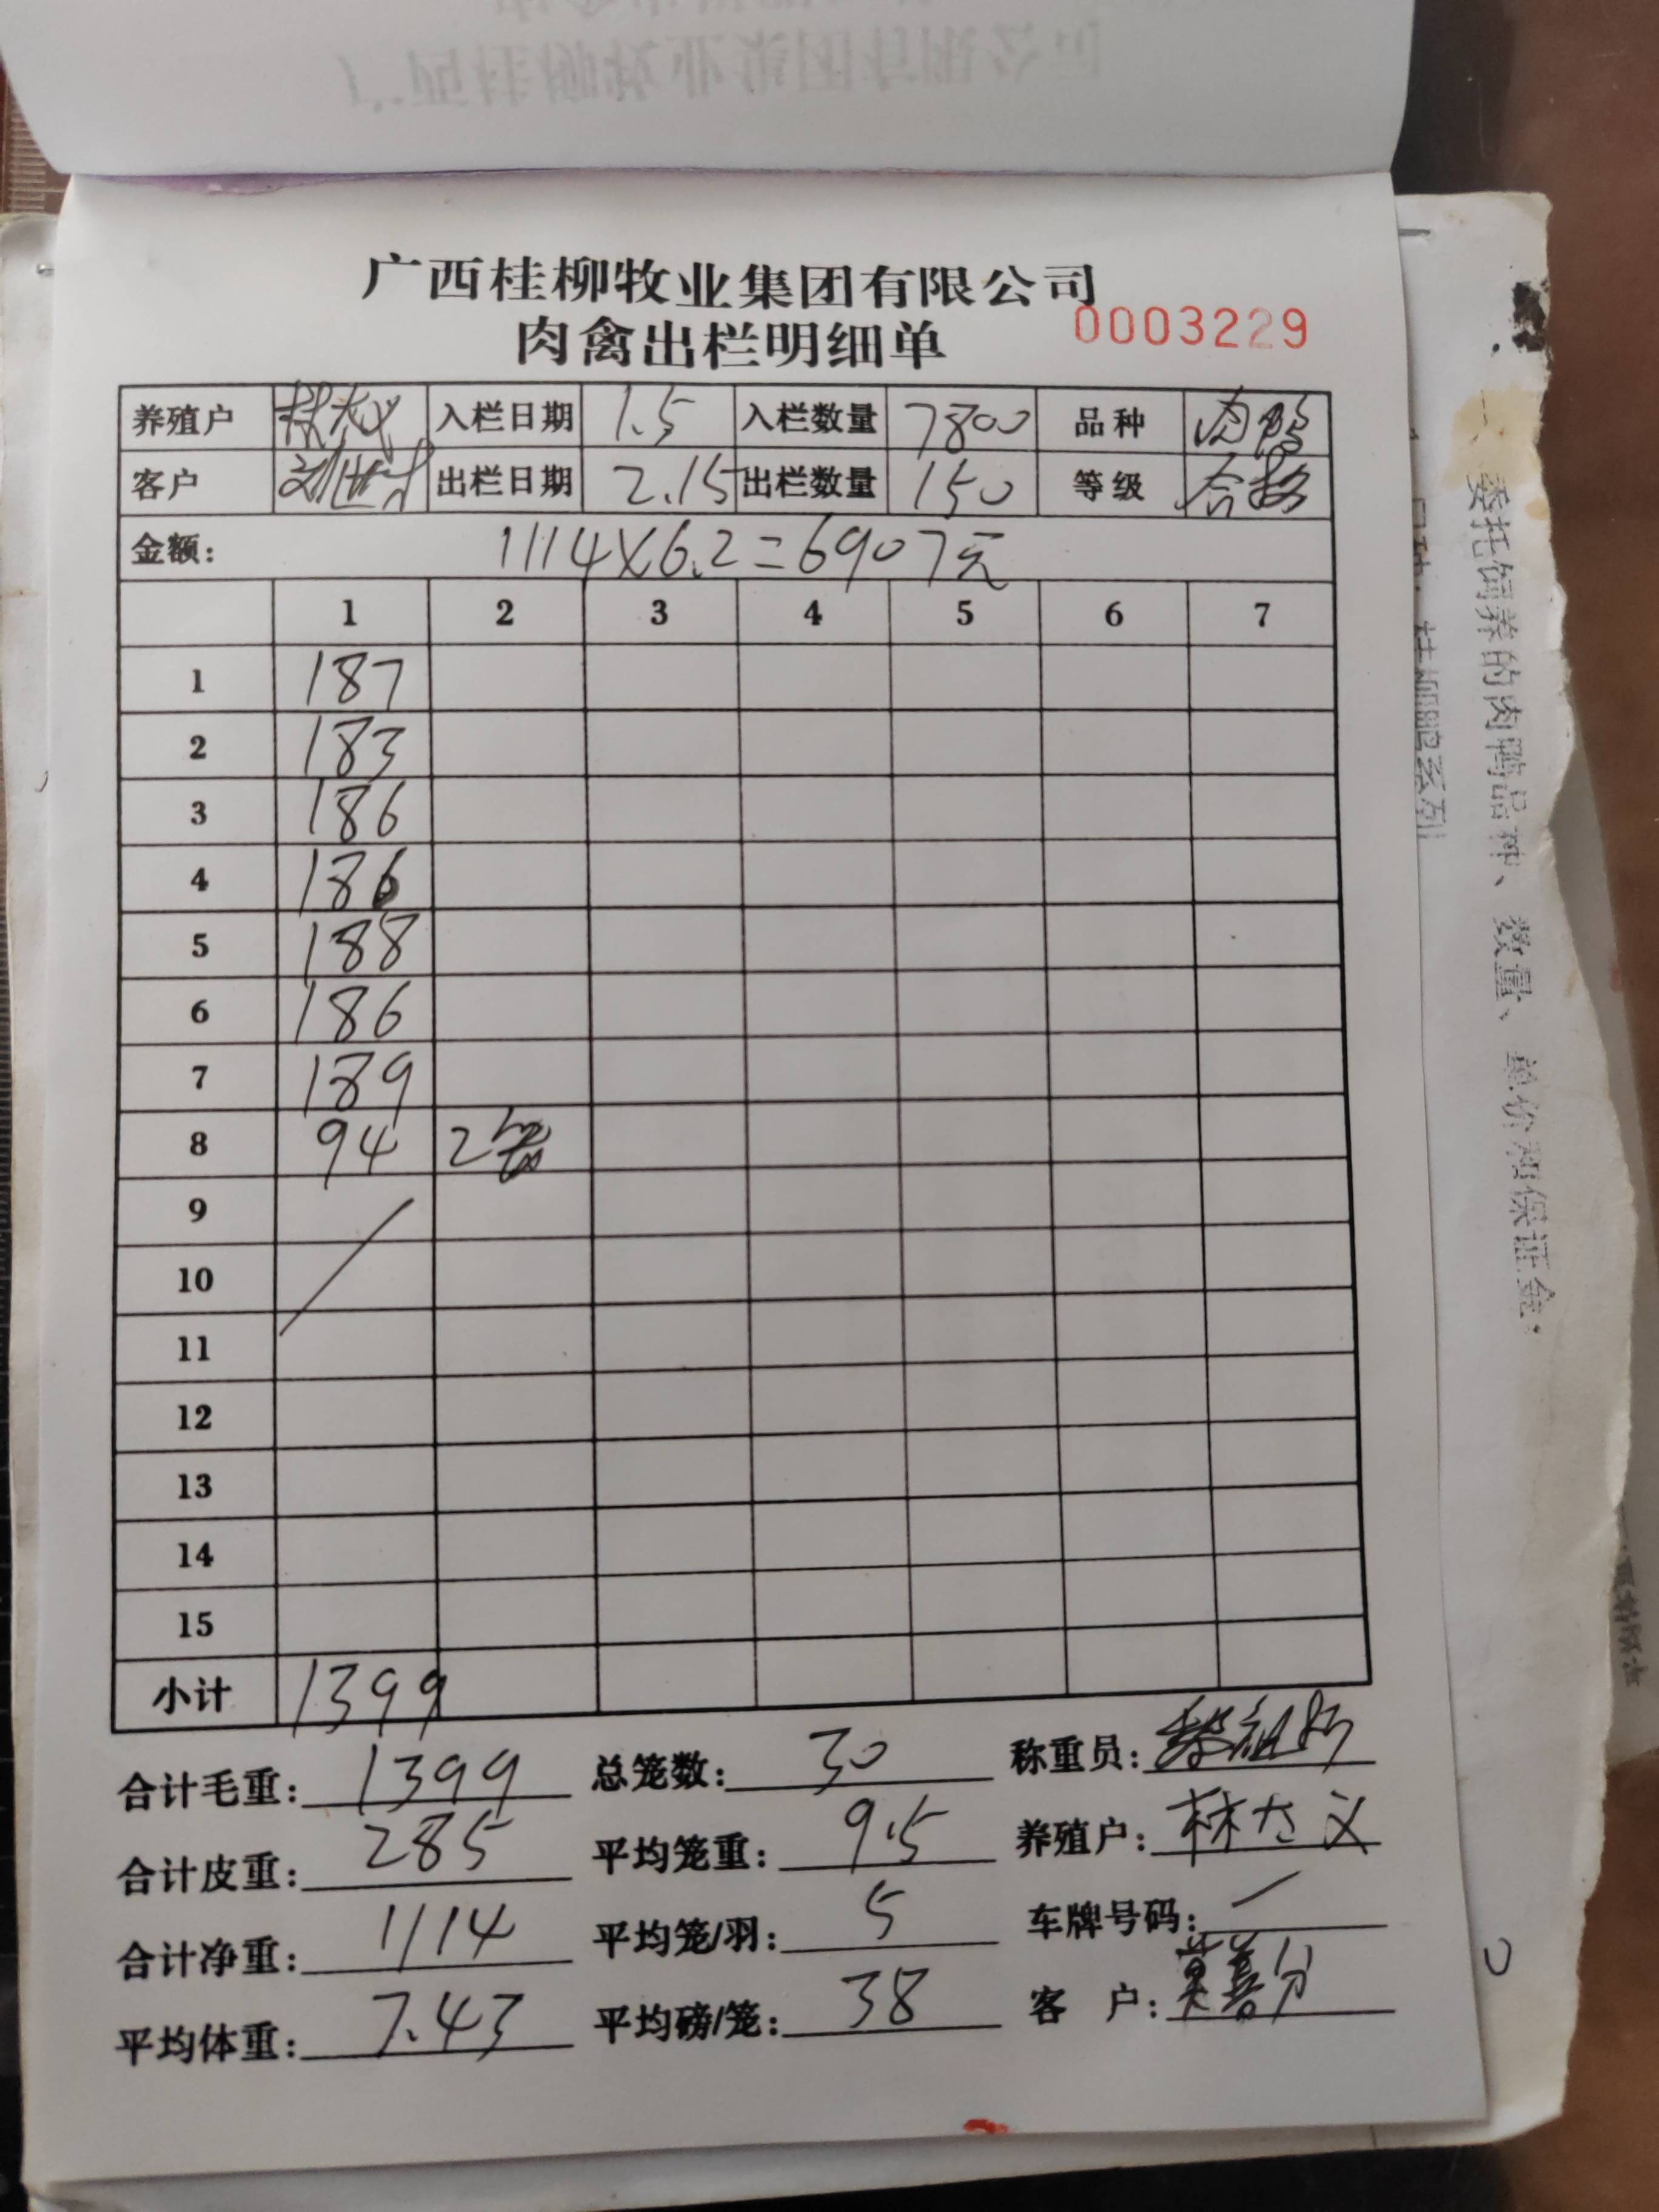 广西桂柳牧业集团有限公司
广西桂柳牧业集团有限公司
肉禽出栏明细单 0003229
养殖户 林大义 入栏日期 1.5 入栏数量 7800 品种 肉鸭
客户 出栏日期 2.15 出栏数量 150 等级 合格
金额: 1114×6.2=6907元
1 2 3 4 5 6 7
1 187
2 183
3 186
4 186
5 188
6 186
7 189
8 94 2笼
9
10
11
12
13
14
15
小计 1399
合计毛重: 1399 总笼数: 30 称重员:
合计皮重: 285 平均笼重: 9.5 养殖户: 林大义
合计净重: 1114 平均笼/羽: 5 车牌号码: /
平均体重: 7.43 平均磅/笼: 38 客 户:
一、委托饲养的肉鸭品种、数量、单价和保证金:
桂柳鸭系列